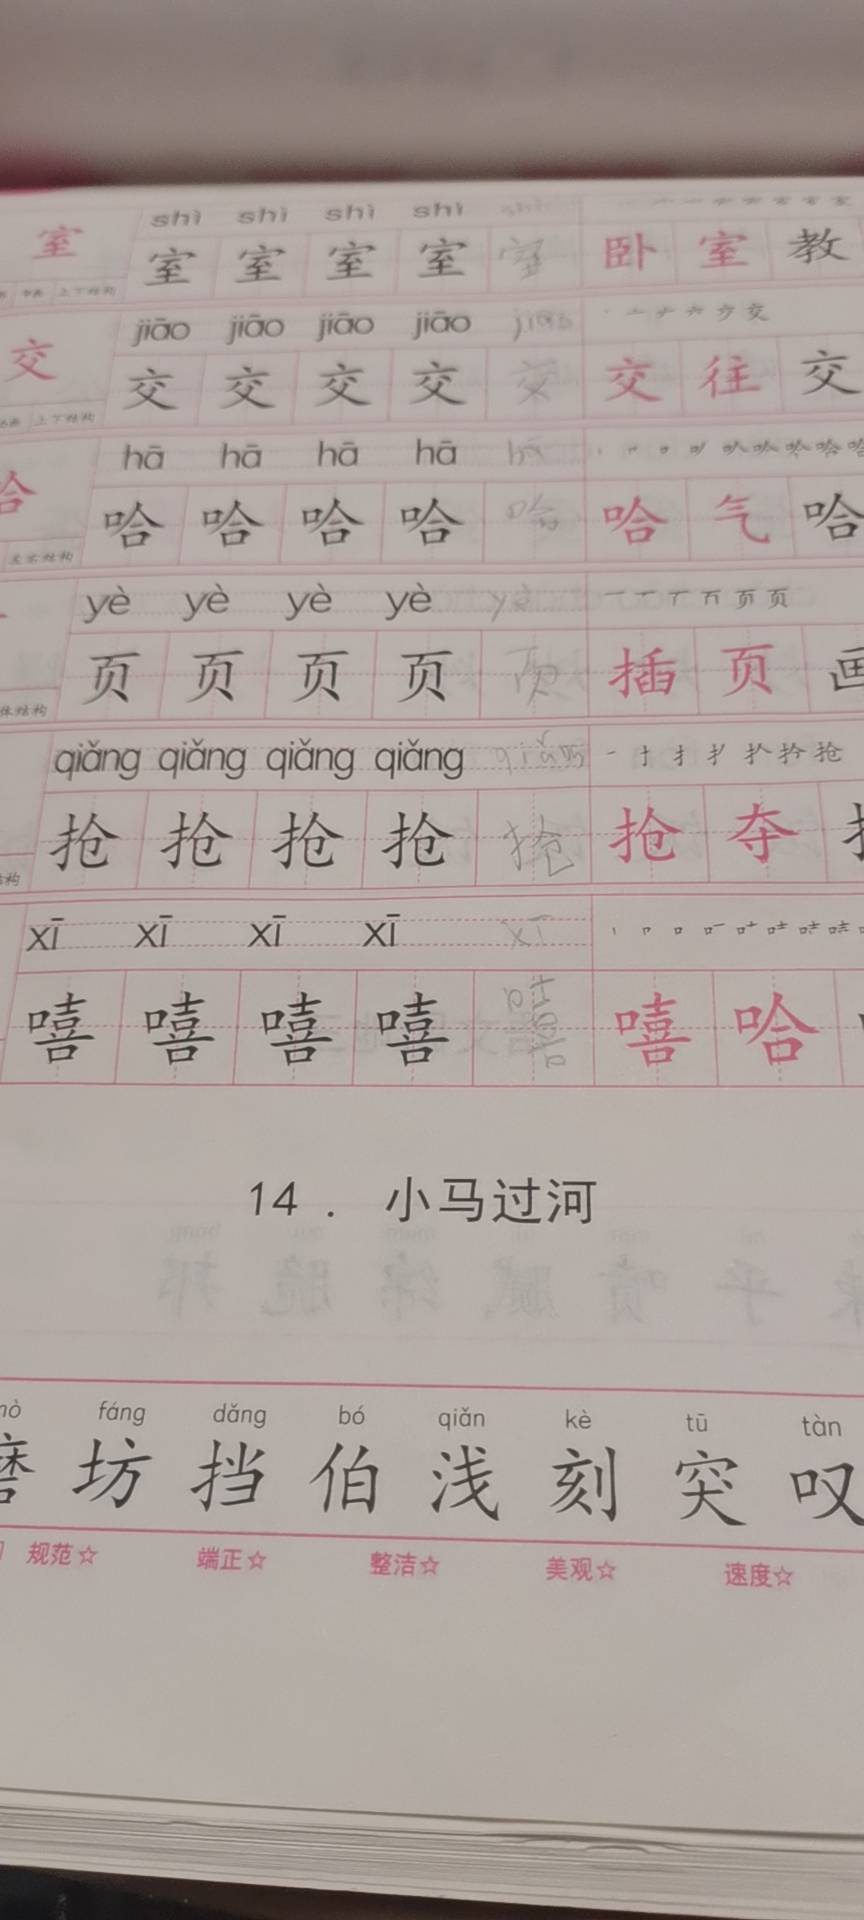 shì shì shì shì shì
室 室 室 室 室 室 卧 室 教
上下结构
jiāo jiāo jiāo jiāo jiāo
交 交 交 交 交 交 交 往 交
上下结构
hā hā hā hā hā
哈 哈 哈 哈 哈 哈 哈 气 哈
左右结构
yè yè yè yè yè
页 页 页 页 页 插 页 画
体结构
qiǎng qiǎng qiǎng qiǎng qiǎng
抢 抢 抢 抢 抢 抢 夺
结构
xī xī xī xī xī
嘻 嘻 嘻 嘻 嘻 嘻 哈
14. 小马过河
fáng dǎng bó qiǎn kè tū tàn
磨 坊 挡 伯 浅 刻 突 叹
规范☆ 端正☆ 整洁☆ 美观☆ 速度☆